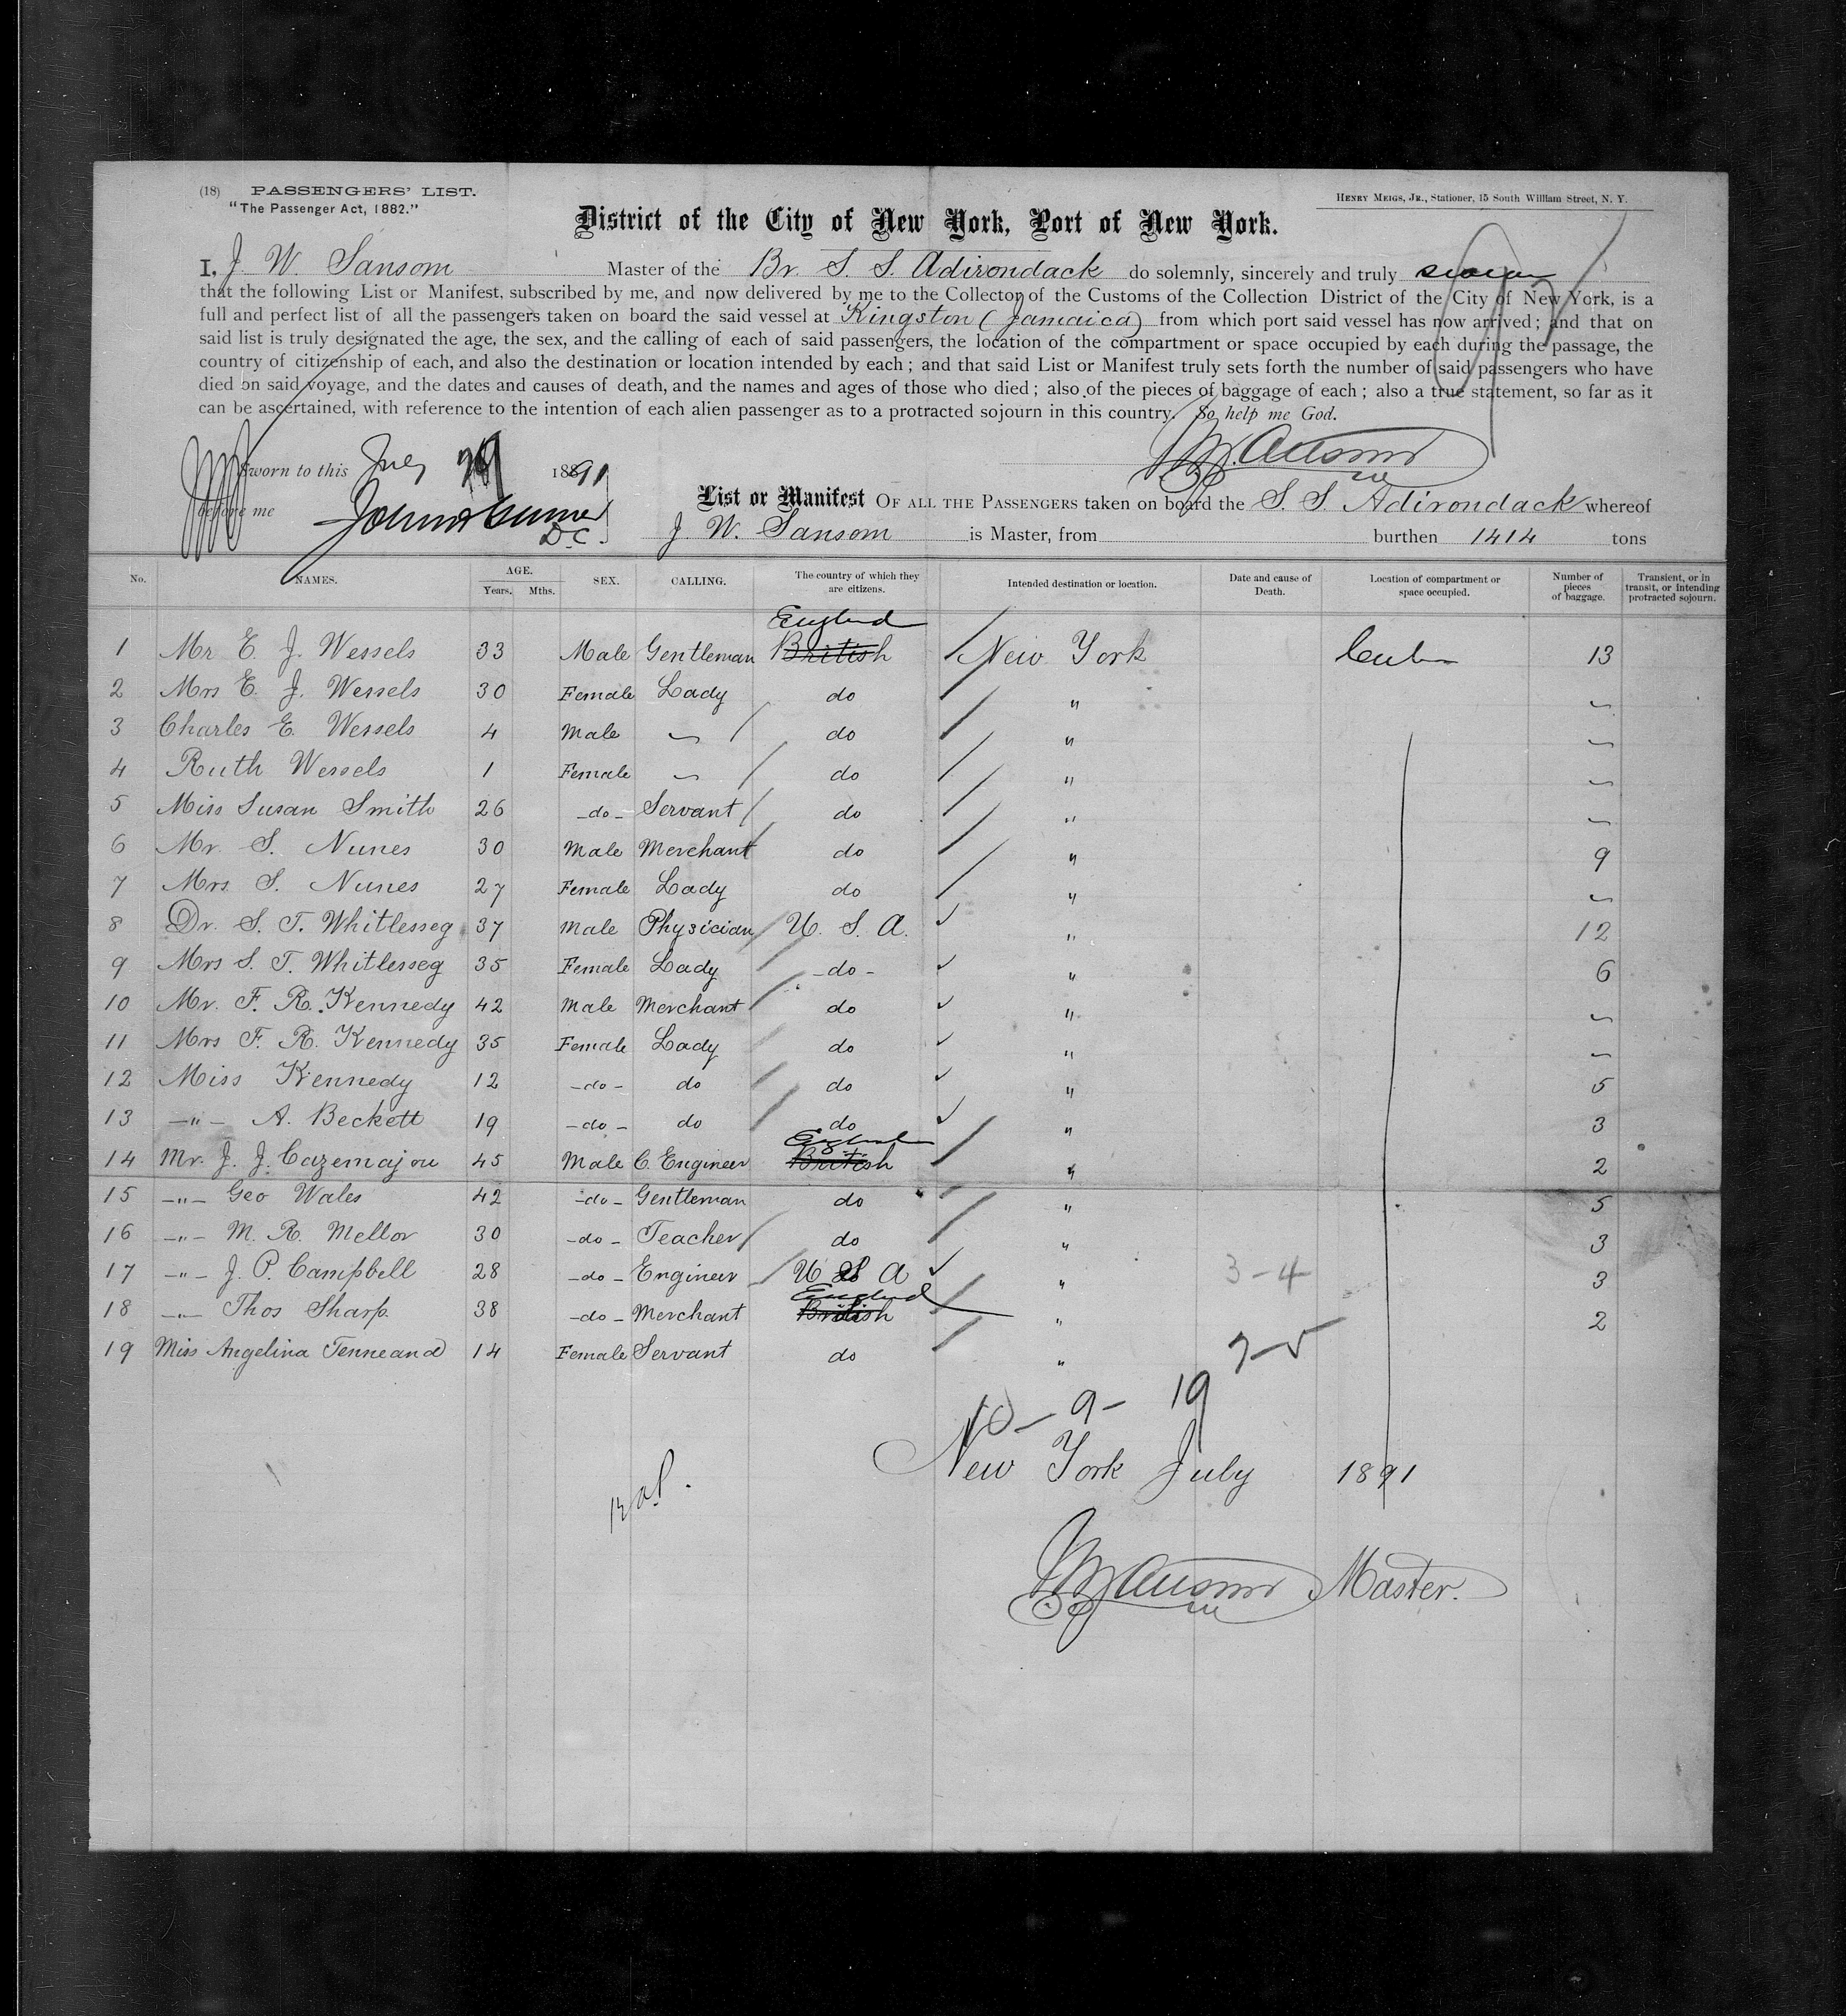 (18) PASSENGERS' LIST.
"The Passenger Act, 1882."
HENRY MEIGS, JR., Stationer, 15 South William Street, N. Y.
District of the City of New York, Port of New York.
I, J. W. Sansom Master of the Br. S. S. Adirondack do solemnly, sincerely and truly swear
that the following List or Manifest, subscribed by me, and now delivered by me to the Collector of the Customs of the Collection District of the City of New York, is a
full and perfect list of all the passengers taken on board the said vessel at Kingston (Jamaica) from which port said vessel has now arrived; and that on
said list is truly designated the age, the sex, and the calling of each of said passengers, the location of the compartment or space occupied by each during the passage, the
country of citizenship of each, and also the destination or location intended by each; and that said List or Manifest truly sets forth the number of said passengers who have
died on said voyage, and the dates and causes of death, and the names and ages of those who died; also of the pieces of baggage of each; also a true statement, so far as it
can be ascertained, with reference to the intention of each alien passenger as to a protracted sojourn in this country. So help me God.
Sworn to this July 1891
before me
D.C.
List or Manifest OF ALL THE PASSENGERS taken on board the S. S. Adirondack whereof
J. W. Sansom is Master, from burthen 1414 tons
No. NAMES. AGE. Years. Mths. SEX. CALLING. The country of which they are citizens. Intended destination or location. Date and cause of Death. Location of compartment or space occupied. Number of pieces of baggage. Transient, or in transit, or intending protracted sojourn.
England
1 Mr E. J. Wessels 33 Male Gentleman British New York 13
2 Mrs E. J. Wessels 30 Female Lady do "
3 Charles E. Wessels 4 Male do "
4 Ruth Wessels 1 Female do "
5 Miss Susan Smith 26 -do- Servant do "
6 Mr. S. Nunes 30 Male Merchant do " 9
7 Mrs. S. Nunes 27 Female Lady do "
8 Dr. S. T. Whitlesseg 37 Male Physician U. S. A. " 12
9 Mrs S. T. Whitlesseg 35 Female Lady -do- " 6
10 Mr. F. R. Kennedy 42 Male Merchant do "
11 Mrs F. R. Kennedy 35 Female Lady do "
12 Miss Kennedy 12 -do- do do " 5
13 -"- A. Beckett 19 -do- do do " 3
England
14 Mr. J. J. Cazemajou 45 Male C. Engineer British " 2
15 -"- Geo Wales 42 -do- Gentleman do " 5
16 -"- M. R. Mellor 30 -do- Teacher do " 3
17 -"- J. P. Campbell 28 -do- Engineer U S A " 3-4 3
England
18 -"- Thos Sharp 38 -do- Merchant British " 2
19 Miss Angelina Tenneand 14 Female Servant do "
10-9-19
New York July 1891
Master.